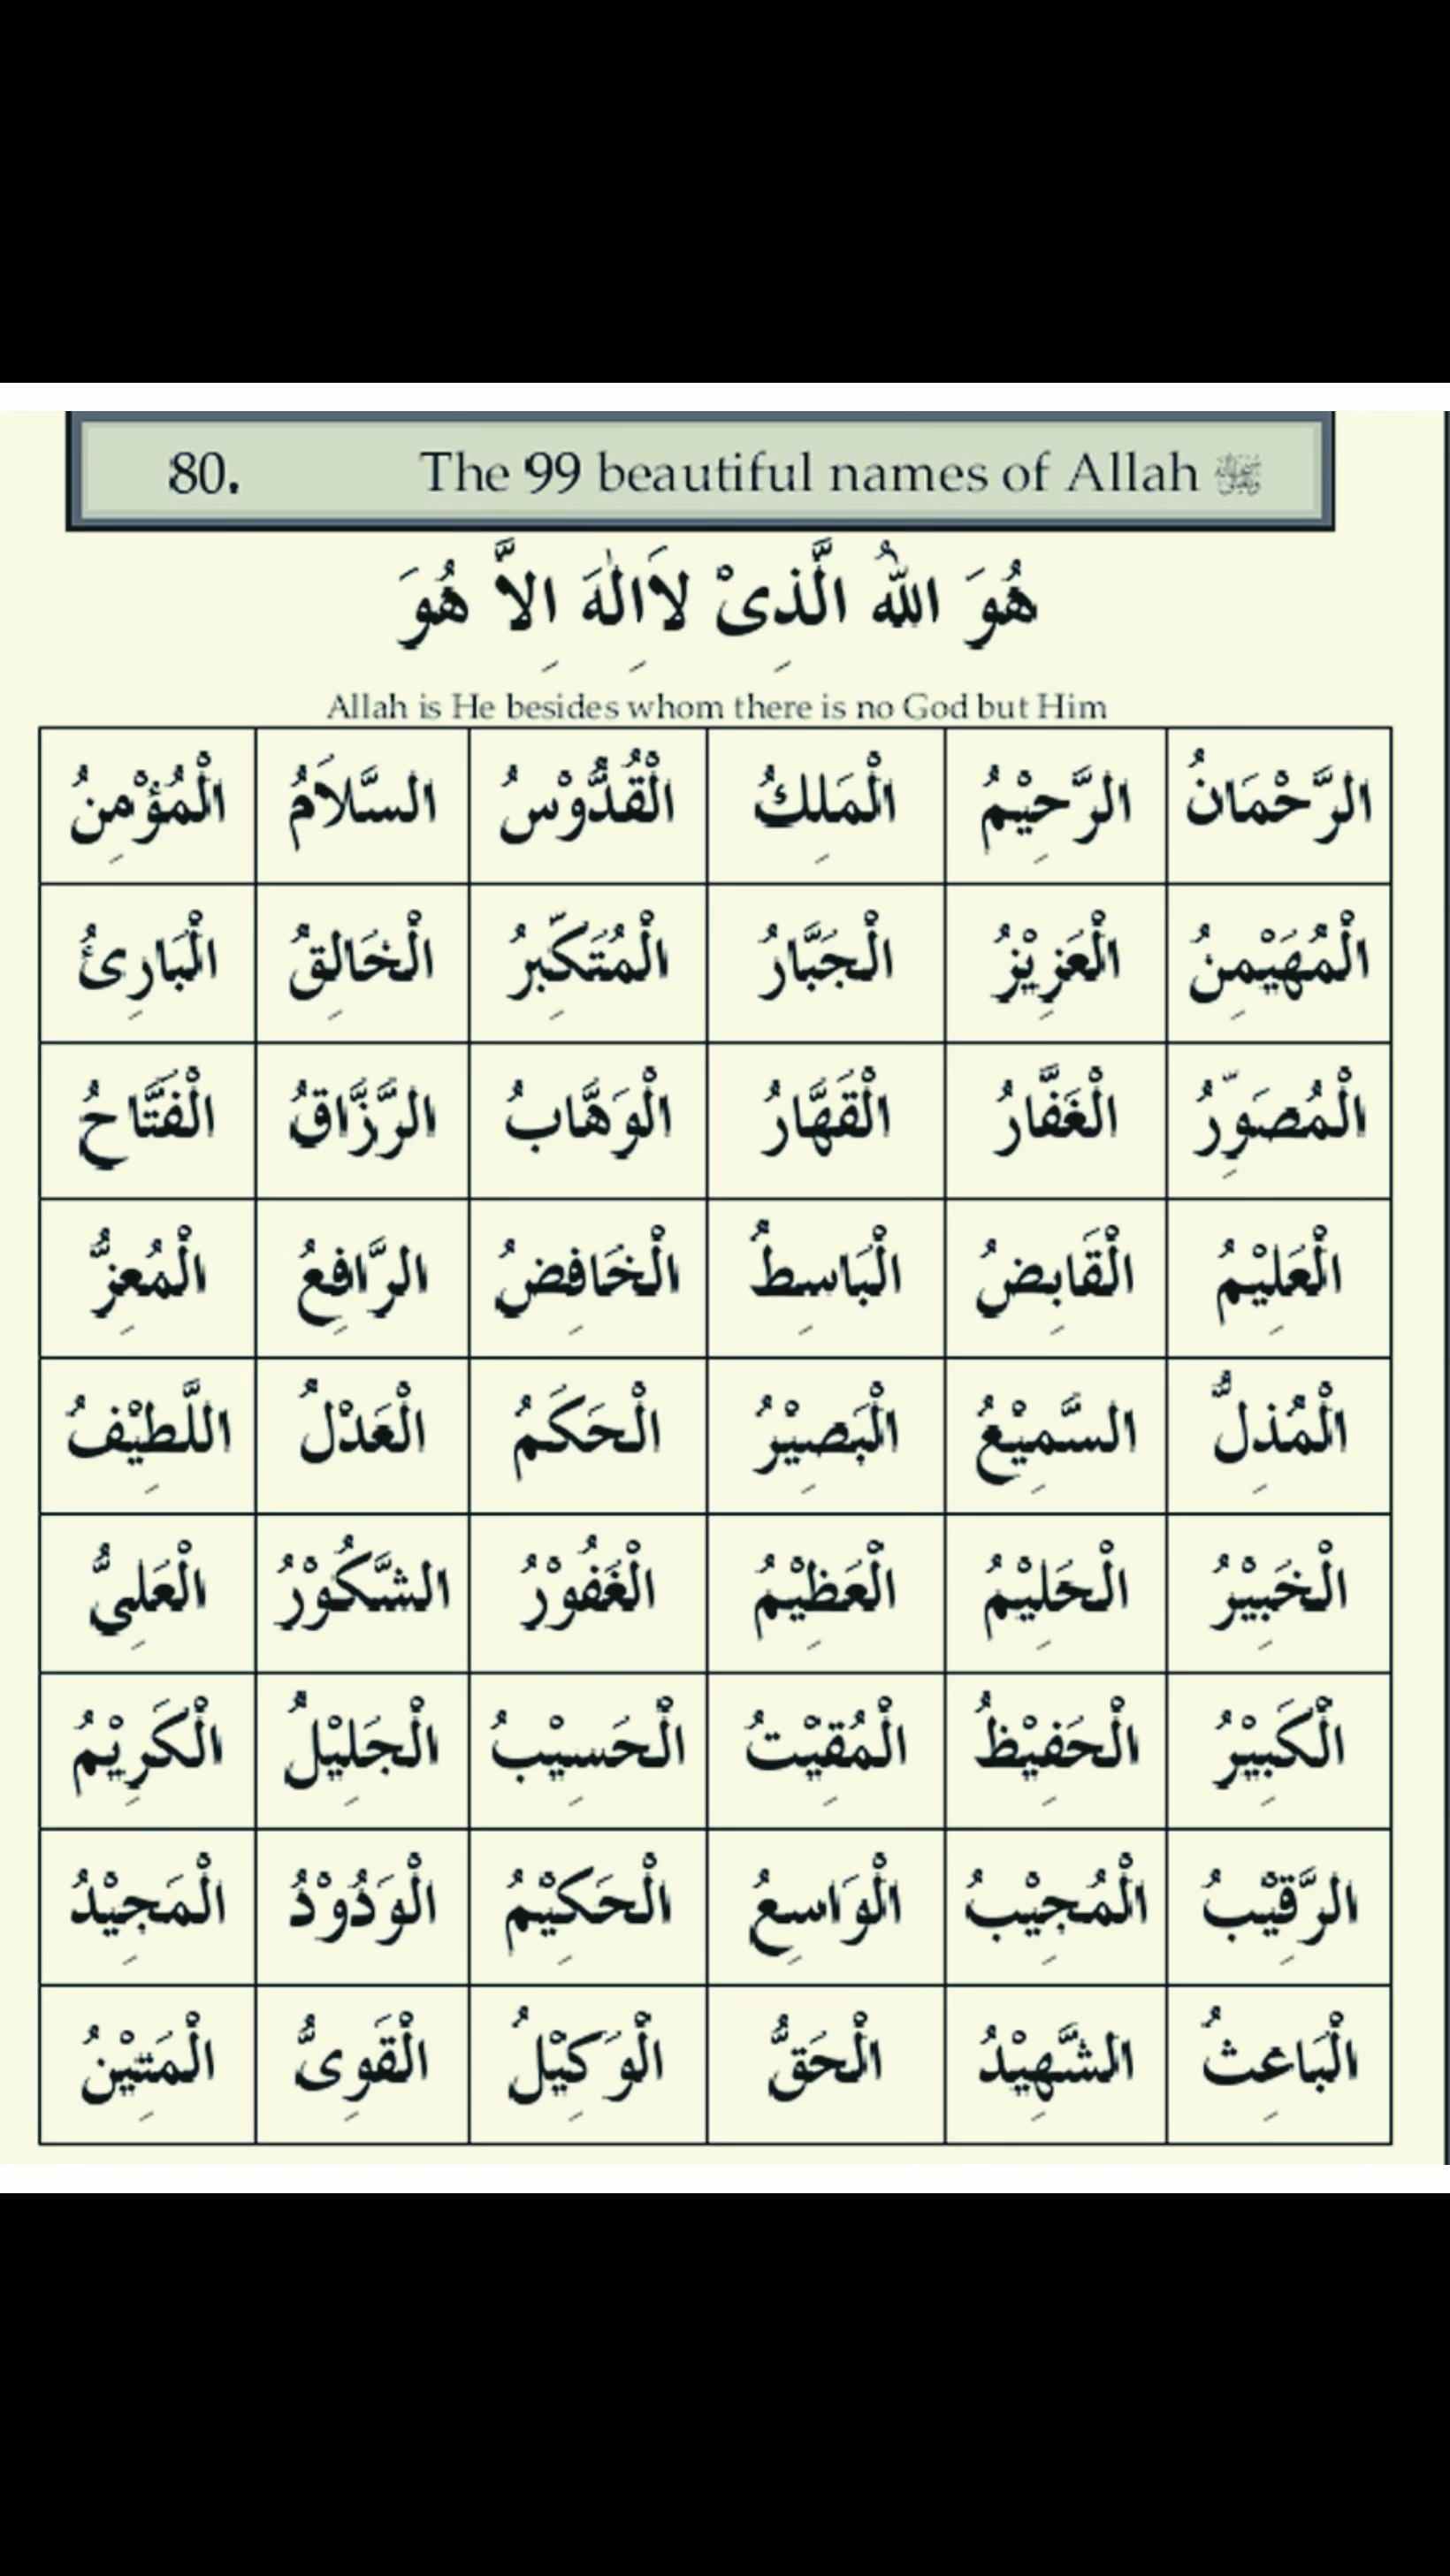 80. The 99 beautiful names of Allah
هُوَ اللهُ الَّذِىْ لاَاِلٰهَ اِلاَّ هُوَ
Allah is He besides whom there is no God but Him
الرَّحْمَانُ الرَّحِيْمُ الْمَلِكُ الْقُدُّوْسُ السَّلاَمُ الْمُؤْمِنُ
الْمُهَيْمِنُ الْعَزِيْزُ الْجَبَّارُ الْمُتَكَبِّرُ الْخَالِقُ الْبَارِئُ
الْمُصَوِّرُ الْغَفَّارُ الْقَهَّارُ الْوَهَّابُ الرَّزَّاقُ الْفَتَّاحُ
الْعَلِيْمُ الْقَابِضُ الْبَاسِطُ الْخَافِضُ الرَّافِعُ الْمُعِزُّ
الْمُذِلُّ السَّمِيْعُ الْبَصِيْرُ الْحَكَمُ الْعَدْلُ اللَّطِيْفُ
الْخَبِيْرُ الْحَلِيْمُ الْعَظِيْمُ الْغَفُوْرُ الشَّكُوْرُ الْعَلِىُّ
الْكَبِيْرُ الْحَفِيْظُ الْمُقِيْتُ الْحَسِيْبُ الْجَلِيْلُ الْكَرِيْمُ
الرَّقِيْبُ الْمُجِيْبُ الْوَاسِعُ الْحَكِيْمُ الْوَدُوْدُ الْمَجِيْدُ
الْبَاعِثُ الشَّهِيْدُ الْحَقُّ الْوَكِيْلُ الْقَوِىُّ الْمَتِيْنُ